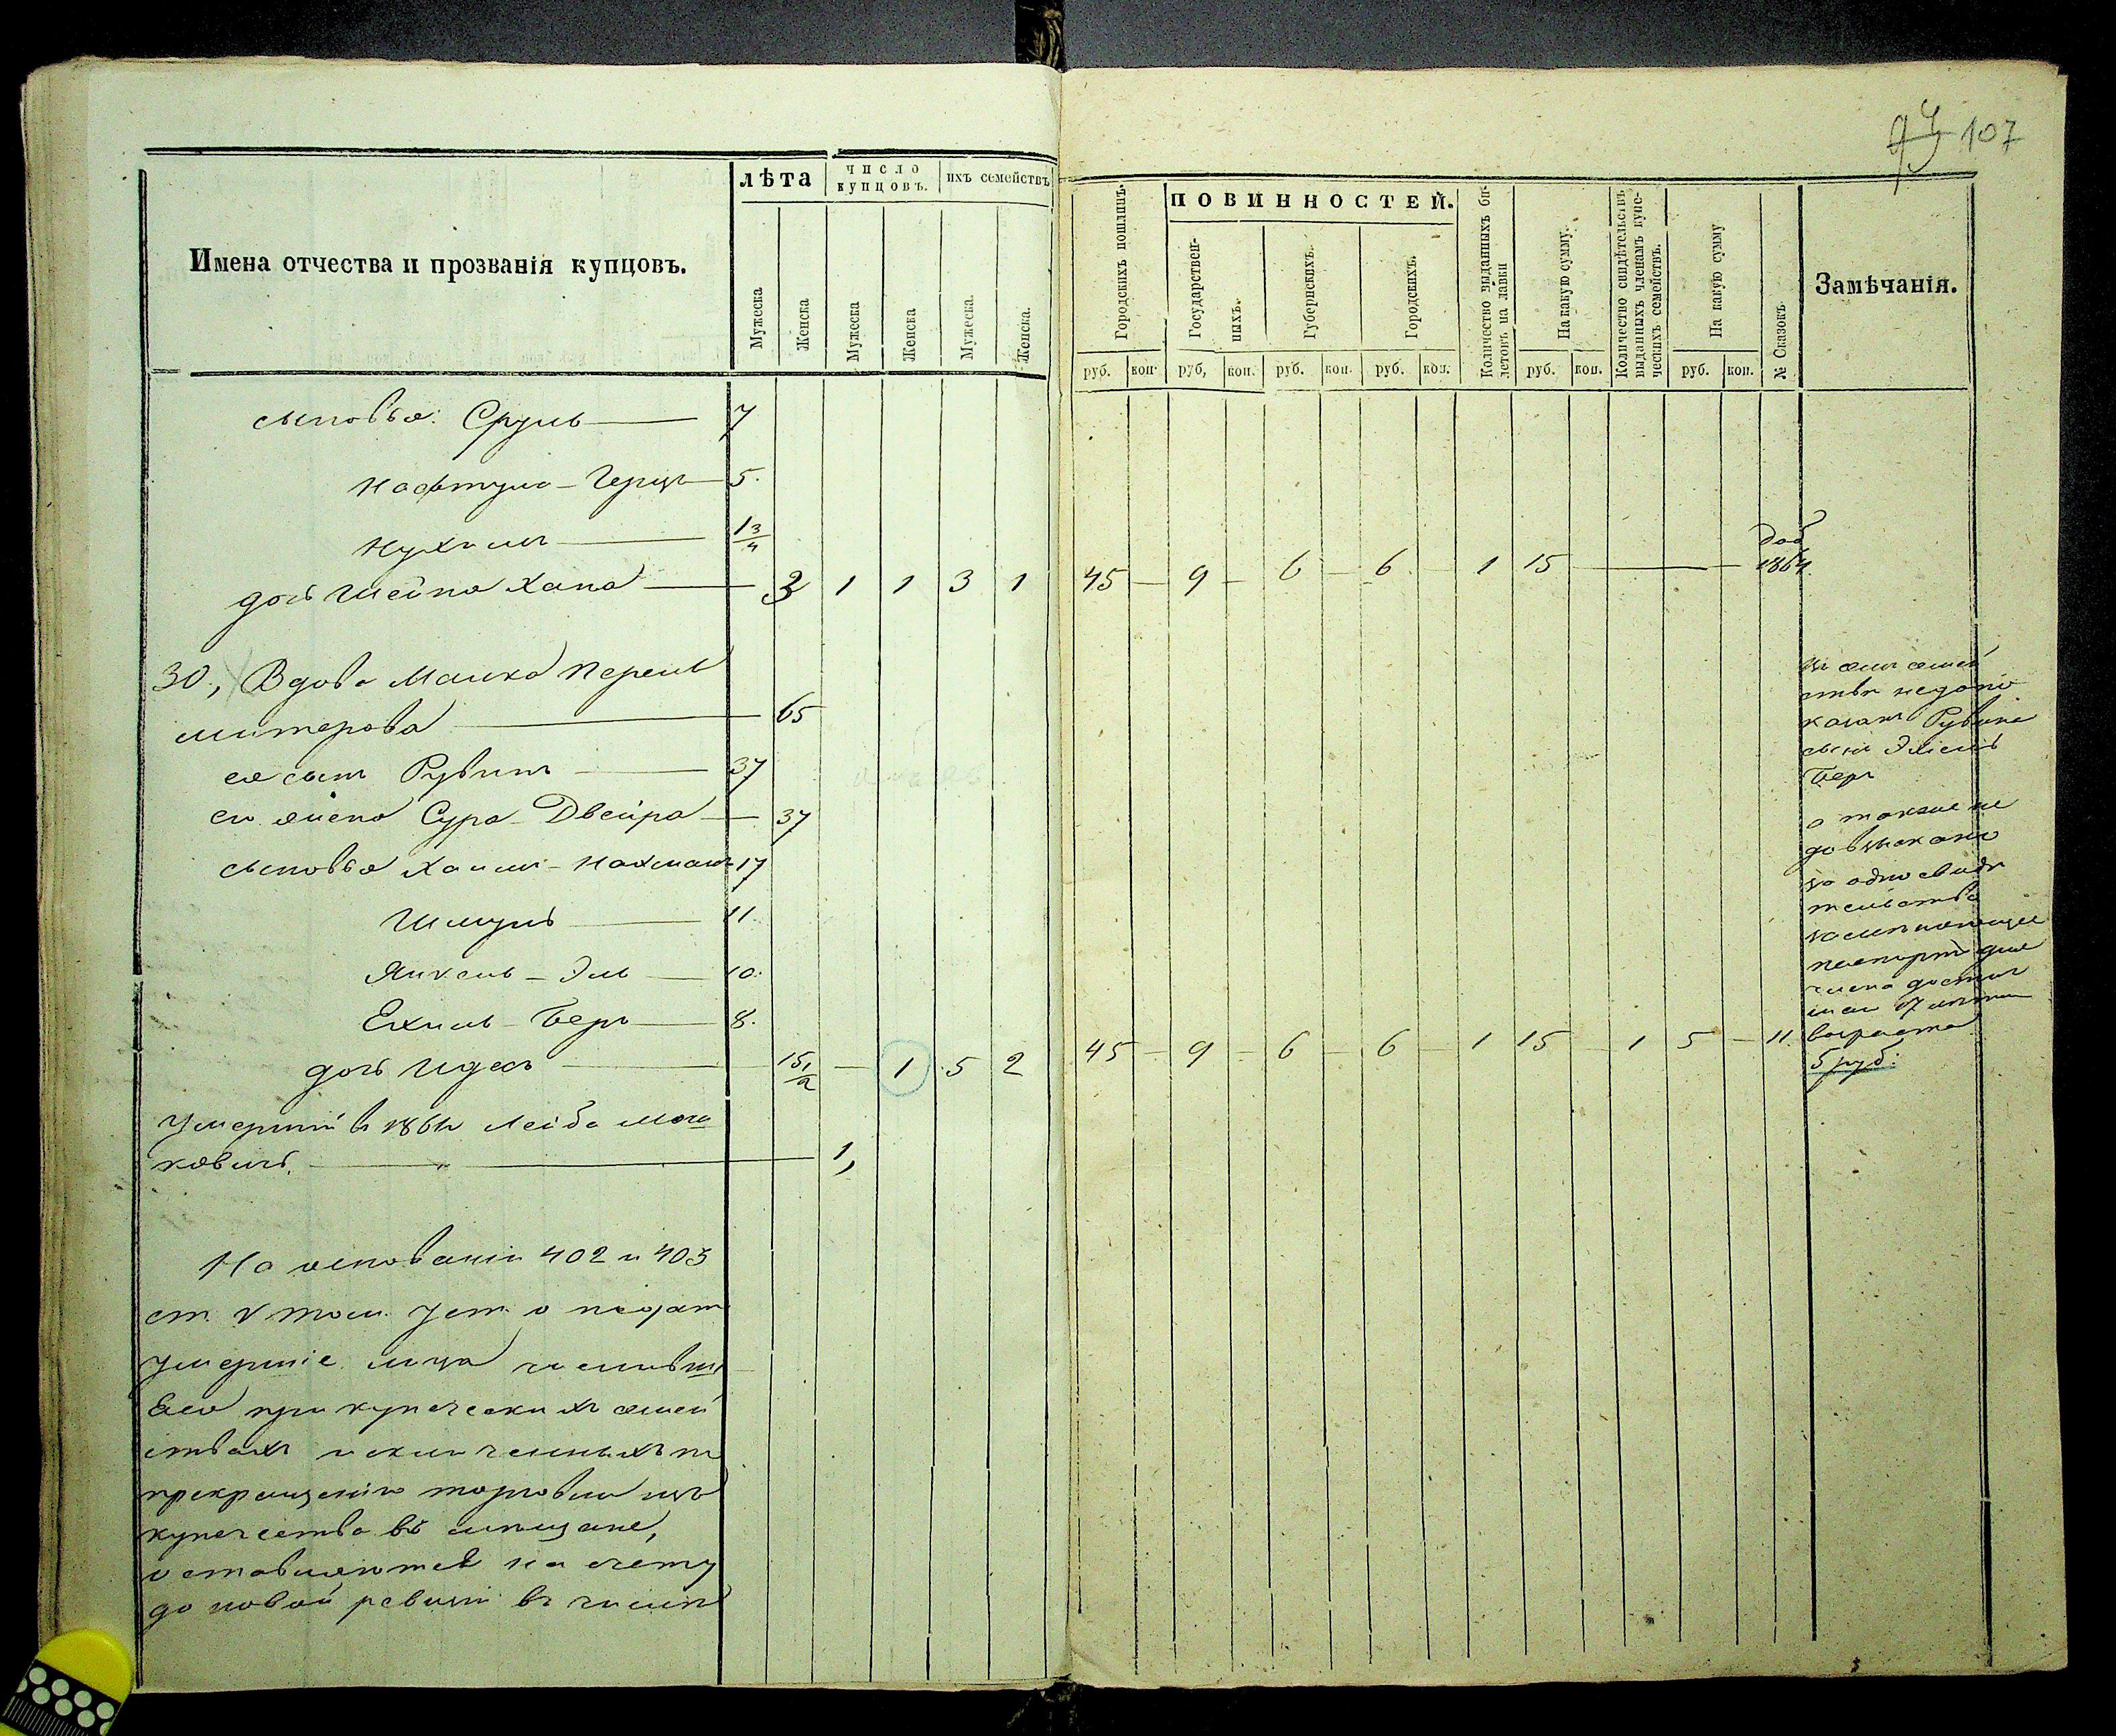 93 107
Имена отчества и прозванія купцовъ.
лѣта
число купцовъ.
ихъ семействъ
Мужеска
Женска
Мужеска
Женска
Мужеска.
Женска.
Городскихъ пошлинъ.
ПОВИННОСТЕЙ.
Государственныхъ.
Губернскихъ.
Городскихъ.
Количество выданныхъ билетовъ на лавки
На какую сумму.
Количество свидѣтельствъ выданныхъ членамъ купеческихъ семействъ.
На какую сумму
№ Сказокъ
Замѣчанія.
руб. коп. руб, коп. руб. коп. руб. коп. руб. коп. руб. коп.
сыновья: Сруль — 7
Нафтула-Герцъ — 5.
Нухимъ — 1 3/4
дочь Шейна Хана — 3 1 1 3 1 45 — 9 — 6 — 6 — 1 15 — — — 1864.
30, Вдова Малка Перель
митерова — 65
ея сынъ Рувинъ — 37
его жена Сура-Двейра — 37
сыновья Хаимъ-Нахманъ 17
Шмуль — 11
Янкель-Эль — 10.
Ехиль-Беръ — 8.
дочь Идесъ — 15 1/2 — 1 5 2 45 — 9 — 6 — 6 — 1 15 — 1 5 — 11.
Умершій въ 1861 Лейба Мош
ковичъ. — 1,
На основаніи 402 и 403
ст. V том. Уст. о подат.
умершіе лица числивш
еся при купеческихъ семей
ствахъ исключенныхъ по
прекращенію торговли изъ
купечества въ мѣщане,
оставляются на счету
до новой ревизіи въ числѣ
въ семъ семей
ствѣ недопо
казанъ Рувина
сынъ Ехиель
Беръ
а также не
довзыскано
за одно свидѣ
тельство
замѣняющее
паспортъ для
члена достиг
шаго 17 лѣтня
возраста
5 руб.